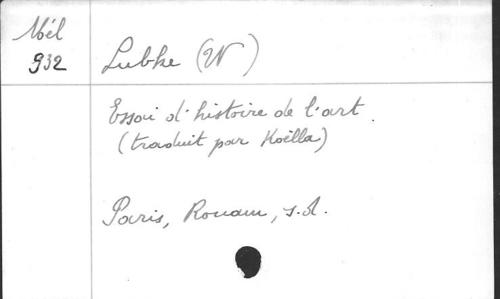 Mél
932
Lubke (W)
Essai d'histoire de l'art.
(traduit par Koëlla)
Paris, Rouam, s.d.